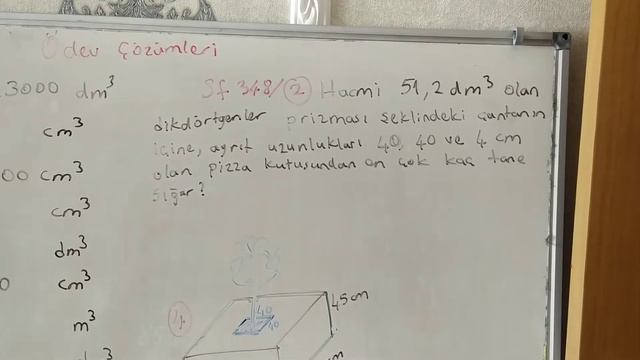 Ödev Çözümleri
3000 dm³
cm³
00 cm³
cm³
dm³
0 cm³
m³
Sf. 348/2 Hacmi 51,2 dm³ olan
dikdörtgenler prizması şeklindeki çantanın
içine, ayrıt uzunlukları 40, 40 ve 4 cm
olan pizza kutusundan en çok kaç tane
sığar?
45cm
40
40